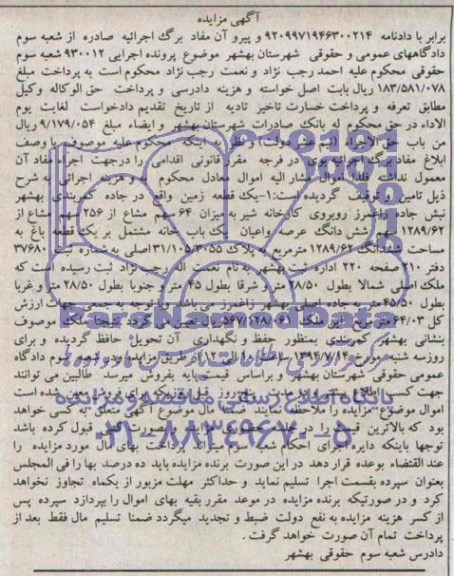 آگهی مزایده
برابر با دادنامه ۹۲۰۹۹۷۱۹۴۶۳۰۰۲۱۴ و پیرو آن مفاد برگ اجرائیه صادره از شعبه سوم
دادگاههای عمومی و حقوقی شهرستان بهشهر موضوع پرونده اجرایی ۹۳۰۰۱۲ شعبه سوم
حقوقی محکوم علیه احمد رجب نژاد و نعمت رجب نژاد محکوم است به پرداخت مبلغ
۱۸۳/۵۸۱/۰۷۸ ریال بابت اصل خواسته و هزینه دادرسی و پرداخت حق الوکاله وکیل
مطابق تعرفه و پرداخت خسارت تاخیر تادیه از تاریخ تقدیم دادخواست لغایت یوم
الاداء در حق محکوم له بانک صادرات شهرستان بهشهر و ایضاء مبلغ ۹/۱۷۹/۰۵۴ ریال
من باب حق الاجراء (نیم عشر دولت) و نظر به اینکه محکوم علیه موصوف با وصف
ابلاغ مفاد برگ اجرائیه وی در فرجه مقرر قانونی اقدامی را در جهت اجراء مفاد آن
معمول نداشته فلذا اموال مشار الیه اموال معادل محکوم به و هزینه اجرائی به شرح
ذیل تامین و توقیف گردیده است: ۱-یک قطعه زمین واقع در جاده کمربندی بهشهر
نبش جاده زاغمرز روبروی کارخانه شیر به میزان ۶۴ سهم مشاع از ۲۵۶ سهم مشاع از
۱۲۸۹/۶۲ سهم شش دانگ عرصه واعیان یک باب خانه مشتمل بر یک قطعه باغ به
مساحت ششدانگ ۱۲۸۹/۶۲ مترمربع به پلاک ۳۱/۱۰۵/۳۰۵۵ اصلی به شماره ثبت ۳۷۶۸۰
دفتر ۲۱۰ صفحه ۲۲۰ اداره ثبت بهشهر به نام نعمت اله رجب نژاد ثبت رسیده است که
ملک اصلی شمالا بطول ۲۸/۵۰ متر و شرقا بطول ۴۵ متر و جنوبا بطول ۲۸/۵۰ متر و غربا
بطول ۴۵/۵۰ متر به جاده اصلی بهشهر زاغمرز می باشد با توجه به جمعی جهات ارزش
کل ۶۴/۰۳ متر مربع این ملک ریال تعیین می گردد ضمنا ملک موصوف
بنشانی بهشهر کمربندی بمنظور حفظ و نگهداری آن تحویل حافظ گردیده و برای
روز سه شنبه مورخ ۱۳۹۴/۷/۱۴ ساعت ۱۰ الی ۱۲ از طریق مزایده در شعبه سوم دادگاه
عمومی حقوقی شهرستان بهشهر و براساس قیمت پایه بفروش میرسد. طالبین می توانند
جهت کسب اطلاع روز قبل
اموال موضوع مزایده را ملاحظه نمایند ضمنا مال موضوع آگهی متعلق به کسی خواهد
بود که بالاترین قیمت را در جلسه قبول کرده باشد
توجها باینکه دایره اجرای احکام شعبه سوم میتواند پرداخت بهای مال مورد مزایده را
عند القتضاء بوعده قرار دهد در این صورت برنده مزایده باید ده درصد بها را فی المجلس
بعنوان سپرده بقسمت اجرا تسلیم نماید و حداکثر مهلت مزبور از یکماه تجاوز نخواهد
کرد و در صورتیکه برنده مزایده در موعد مقرر بقیه بهای اموال را نپردازد سپرده پس
از کسر هزینه مزایده به نفع دولت ضبط و تجدید میگردد ضمنا تسلیم مال فقط بعد از
پرداخت تمام آن صورت خواهد گرفت.
دادرس شعبه سوم حقوقی بهشهر
ParsNamadData
پایگاه اطلاع رسانی مناقصه و مزایده
۰۲۱-۸۸۳۴۹۶۷۰-۵